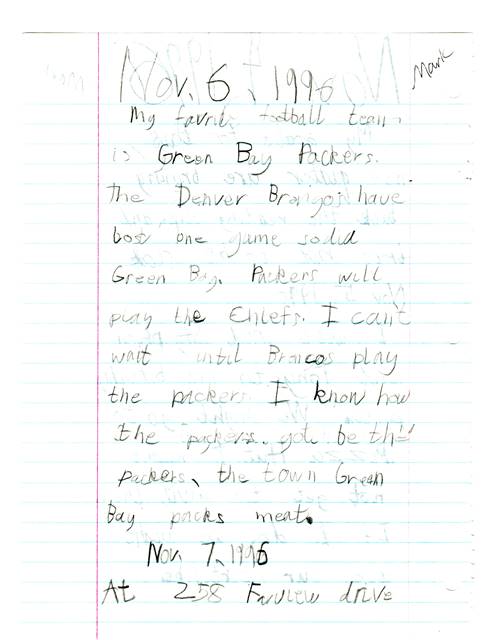 Mark
Nov. 6, 1996
My favrit football team
is Green Bay Packers.
the Denver Brongos have
lost one game so did
Green Bay. Packers will
play the Chiefs. I can't
wait until Broncos play
the packers I know how
the packers got be the
packers, the town Green
Bay packs meat.
Nov. 7, 1996
At 258 Farview drive